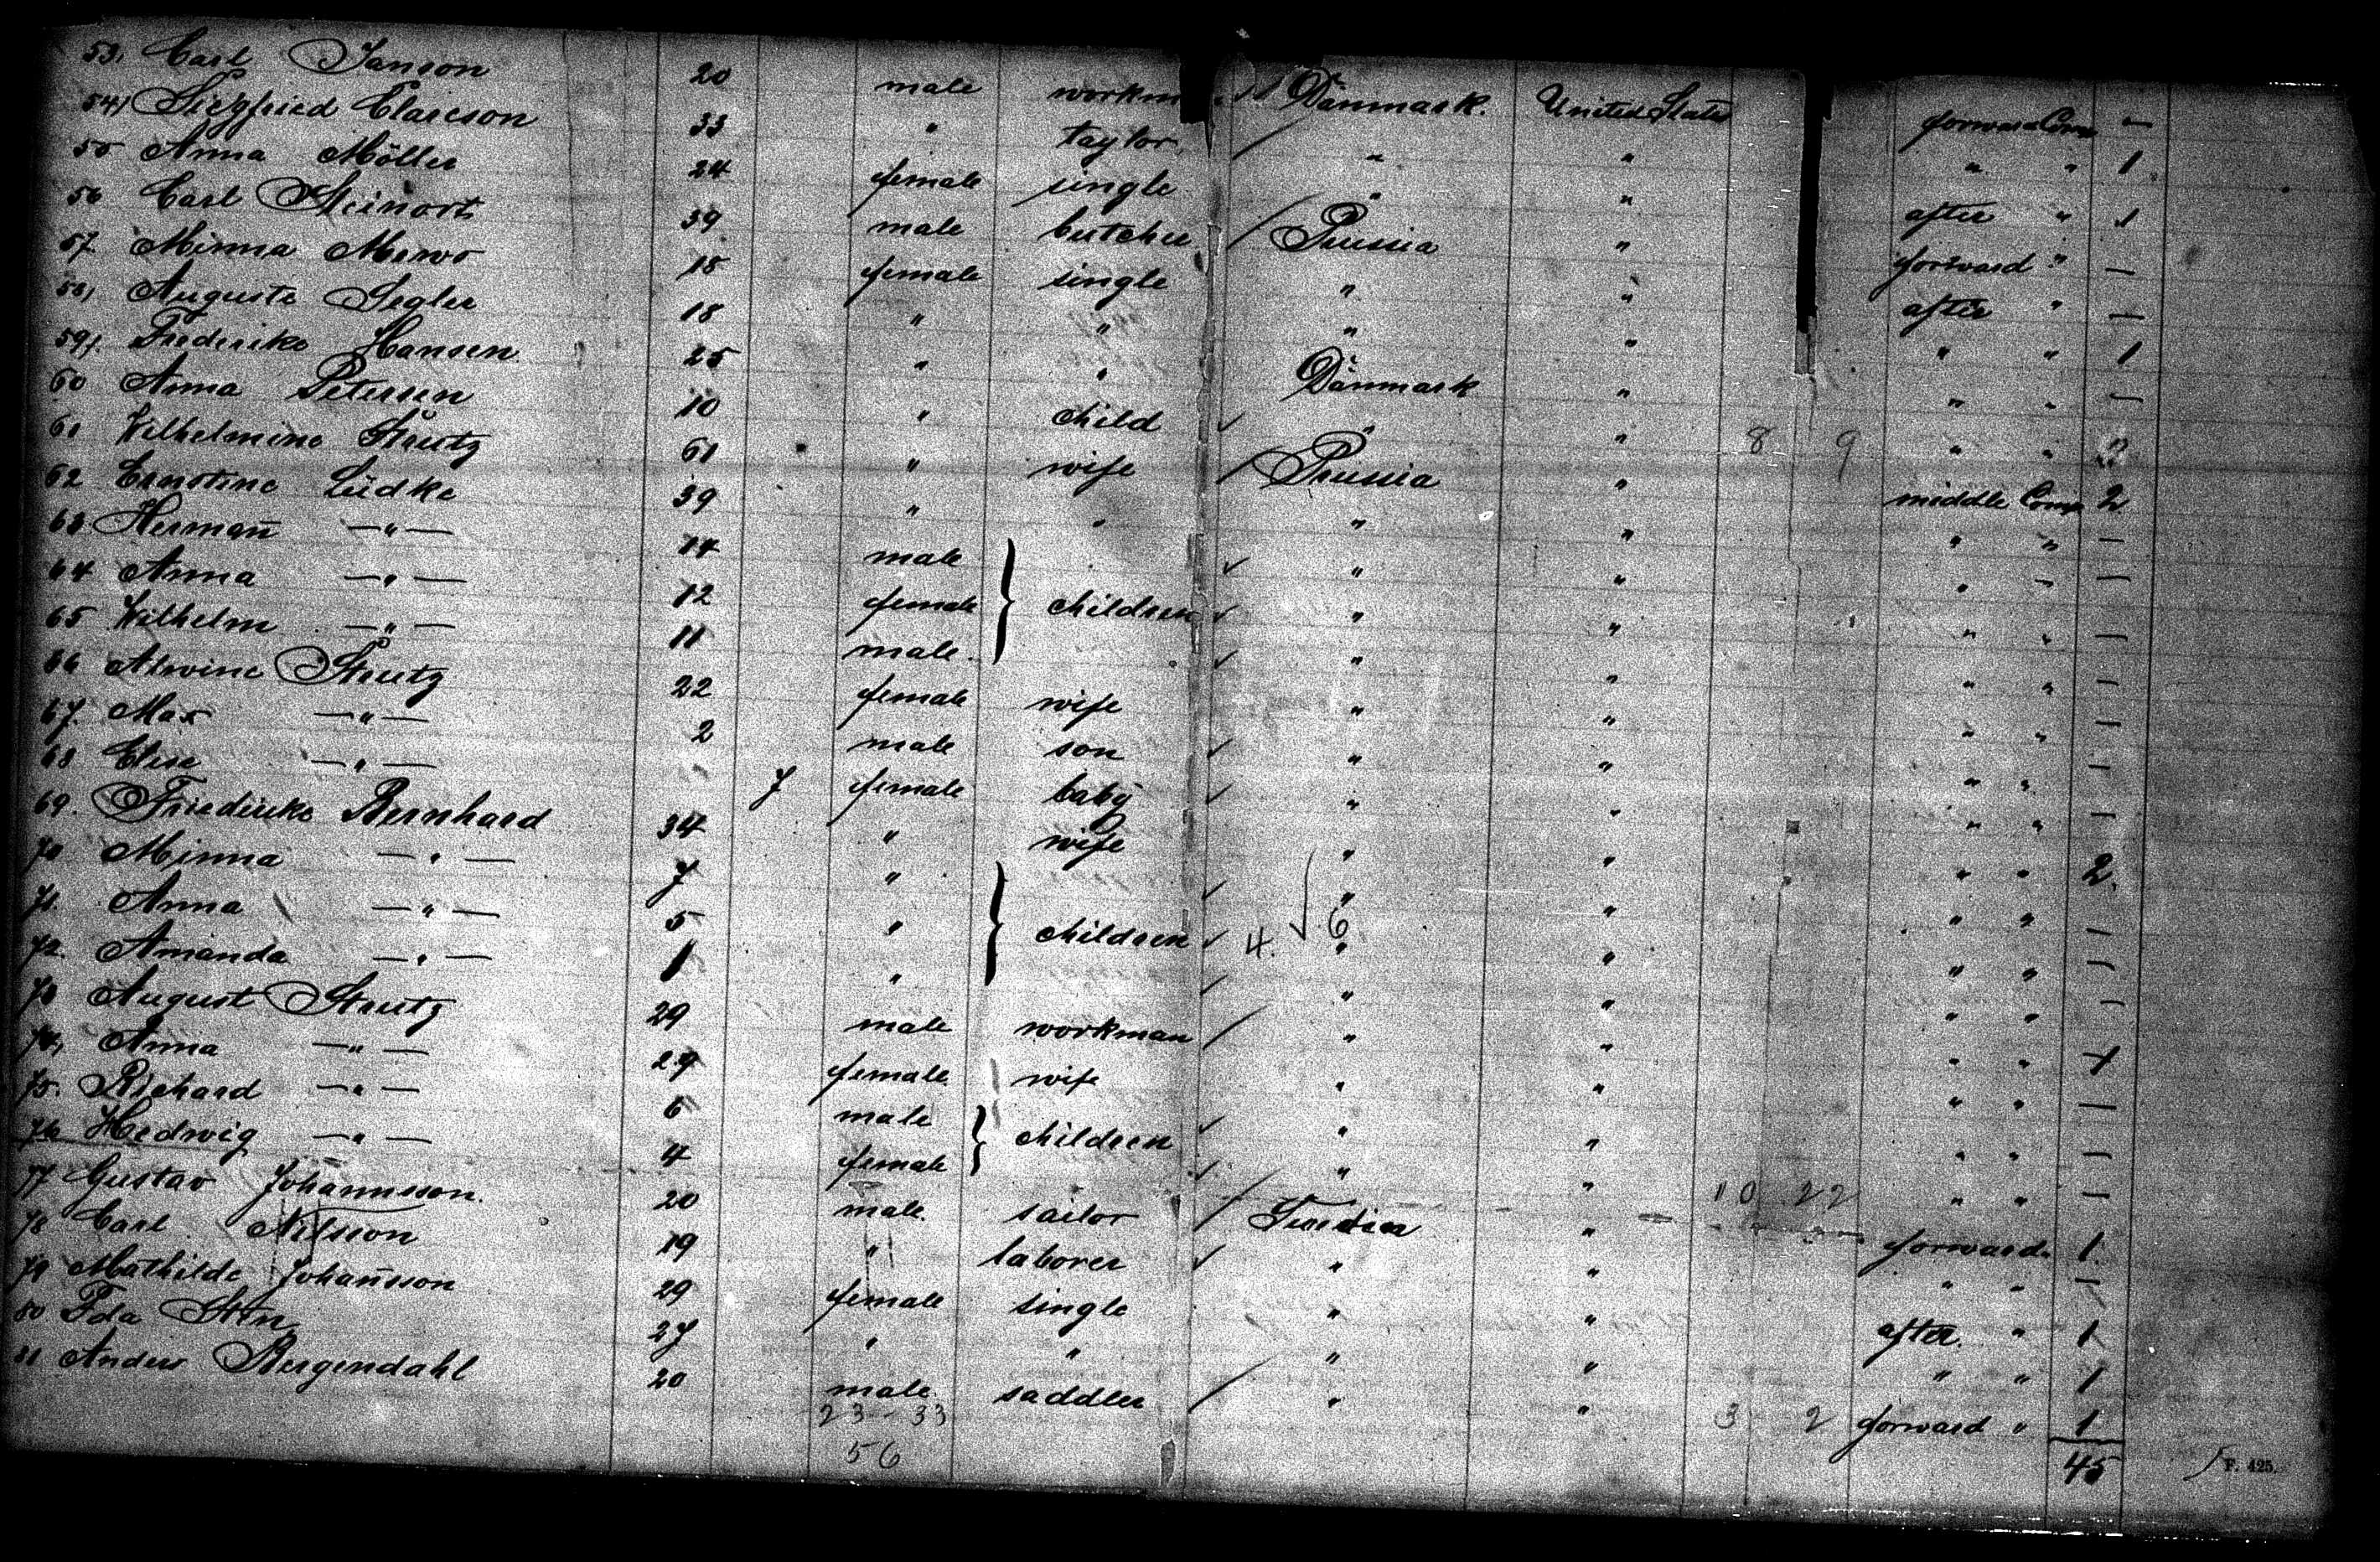 53, Carl Janson 20 male workm Dänmark. United State forward Comp —
54, Siegfried Clarison 33 " taylor " " " " 1
55 Anna Möller 24 female single " " after " 1
56 Carl Steinort 39 male butcher Prussia " forward " —
57. Minna Mews 18 female single " " after " —
58, Auguste Segler 18 " " " " " " 1
59, Frederike Hansen 25 " " Dänmark " " " —
60 Anna Petersen 10 " child " " 8 9 " "
61 Wilhelmine Strutz 61 " wife Prussia " middle Comp 2
62 Ernstine Lüdke 39 " " " " " " —
63 Hermañ —"— 14 male " " " " —
64 Anna —"— 12 female children " " " " —
65 Wilhelm —"— 11 male " " " " —
66 Alwine Strutz 22 female wife " " " " —
67. Max —"— 2 male son " " " " —
68 Elise —"— 7 female baby " " " " —
69. Friedericke Bernhard 34 " wife " " " " 2.
70 Minna —"— 7 " " " " " —
71. Anna —"— 5 " children 4. 6 " " " " —
72. Amanda —"— 1 " " " " " —
73 August Strutz 29 male workman " " " " 1
74, Anna —"— 29 female wife " " " " —
75. Richard —"— 6 male children " " " " —
76 Hedwig —"— 4 female " " 10 22 " " —
77 Gustav Johannsson. 20 male. sailor " forward " 1
78 Carl Nilsson 19 " laborer " " " " —
79 Mathilde Johañsson 29 female single " " after. " 1
80 Ida Sten 27 " " " " " " 1
81 Anders Bergendahl 20 male saddler " " 3 2 forward " 1
23 - 33
56
45
F. 425.